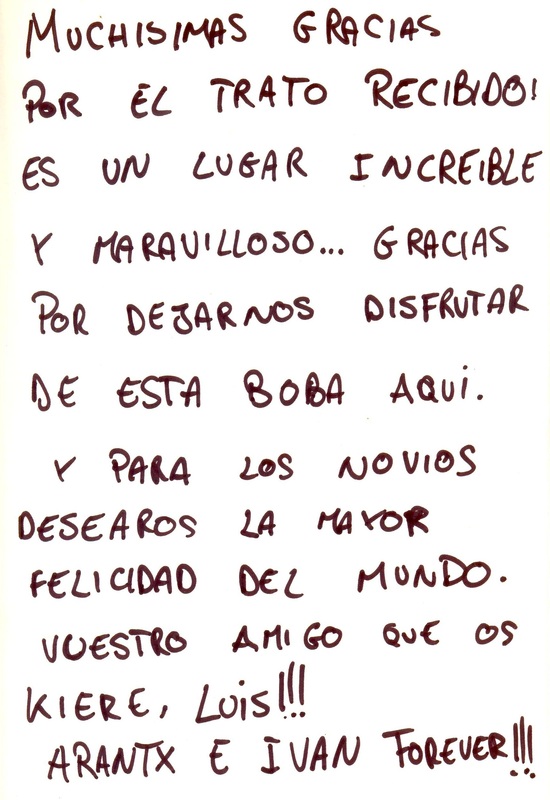 MUCHISIMAS GRACIAS
POR EL TRATO RECIBIDO!
ES UN LUGAR INCREIBLE
Y MARAVILLOSO... GRACIAS
POR DEJARNOS DISFRUTAR
DE ESTA BOBA AQUí.
Y PARA LOS NOVIOS
DESEAROS LA MAYOR
FELICIDAD DEL MUNDO.
VUESTRO AMIGO QUE OS
KIERE, LUiS!!!
ARANTX E IVAN FOREVER!!!